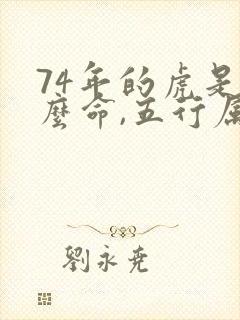 74年的虎是
麼命,五行属
劉永堯